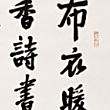 布衣暖
香詩書